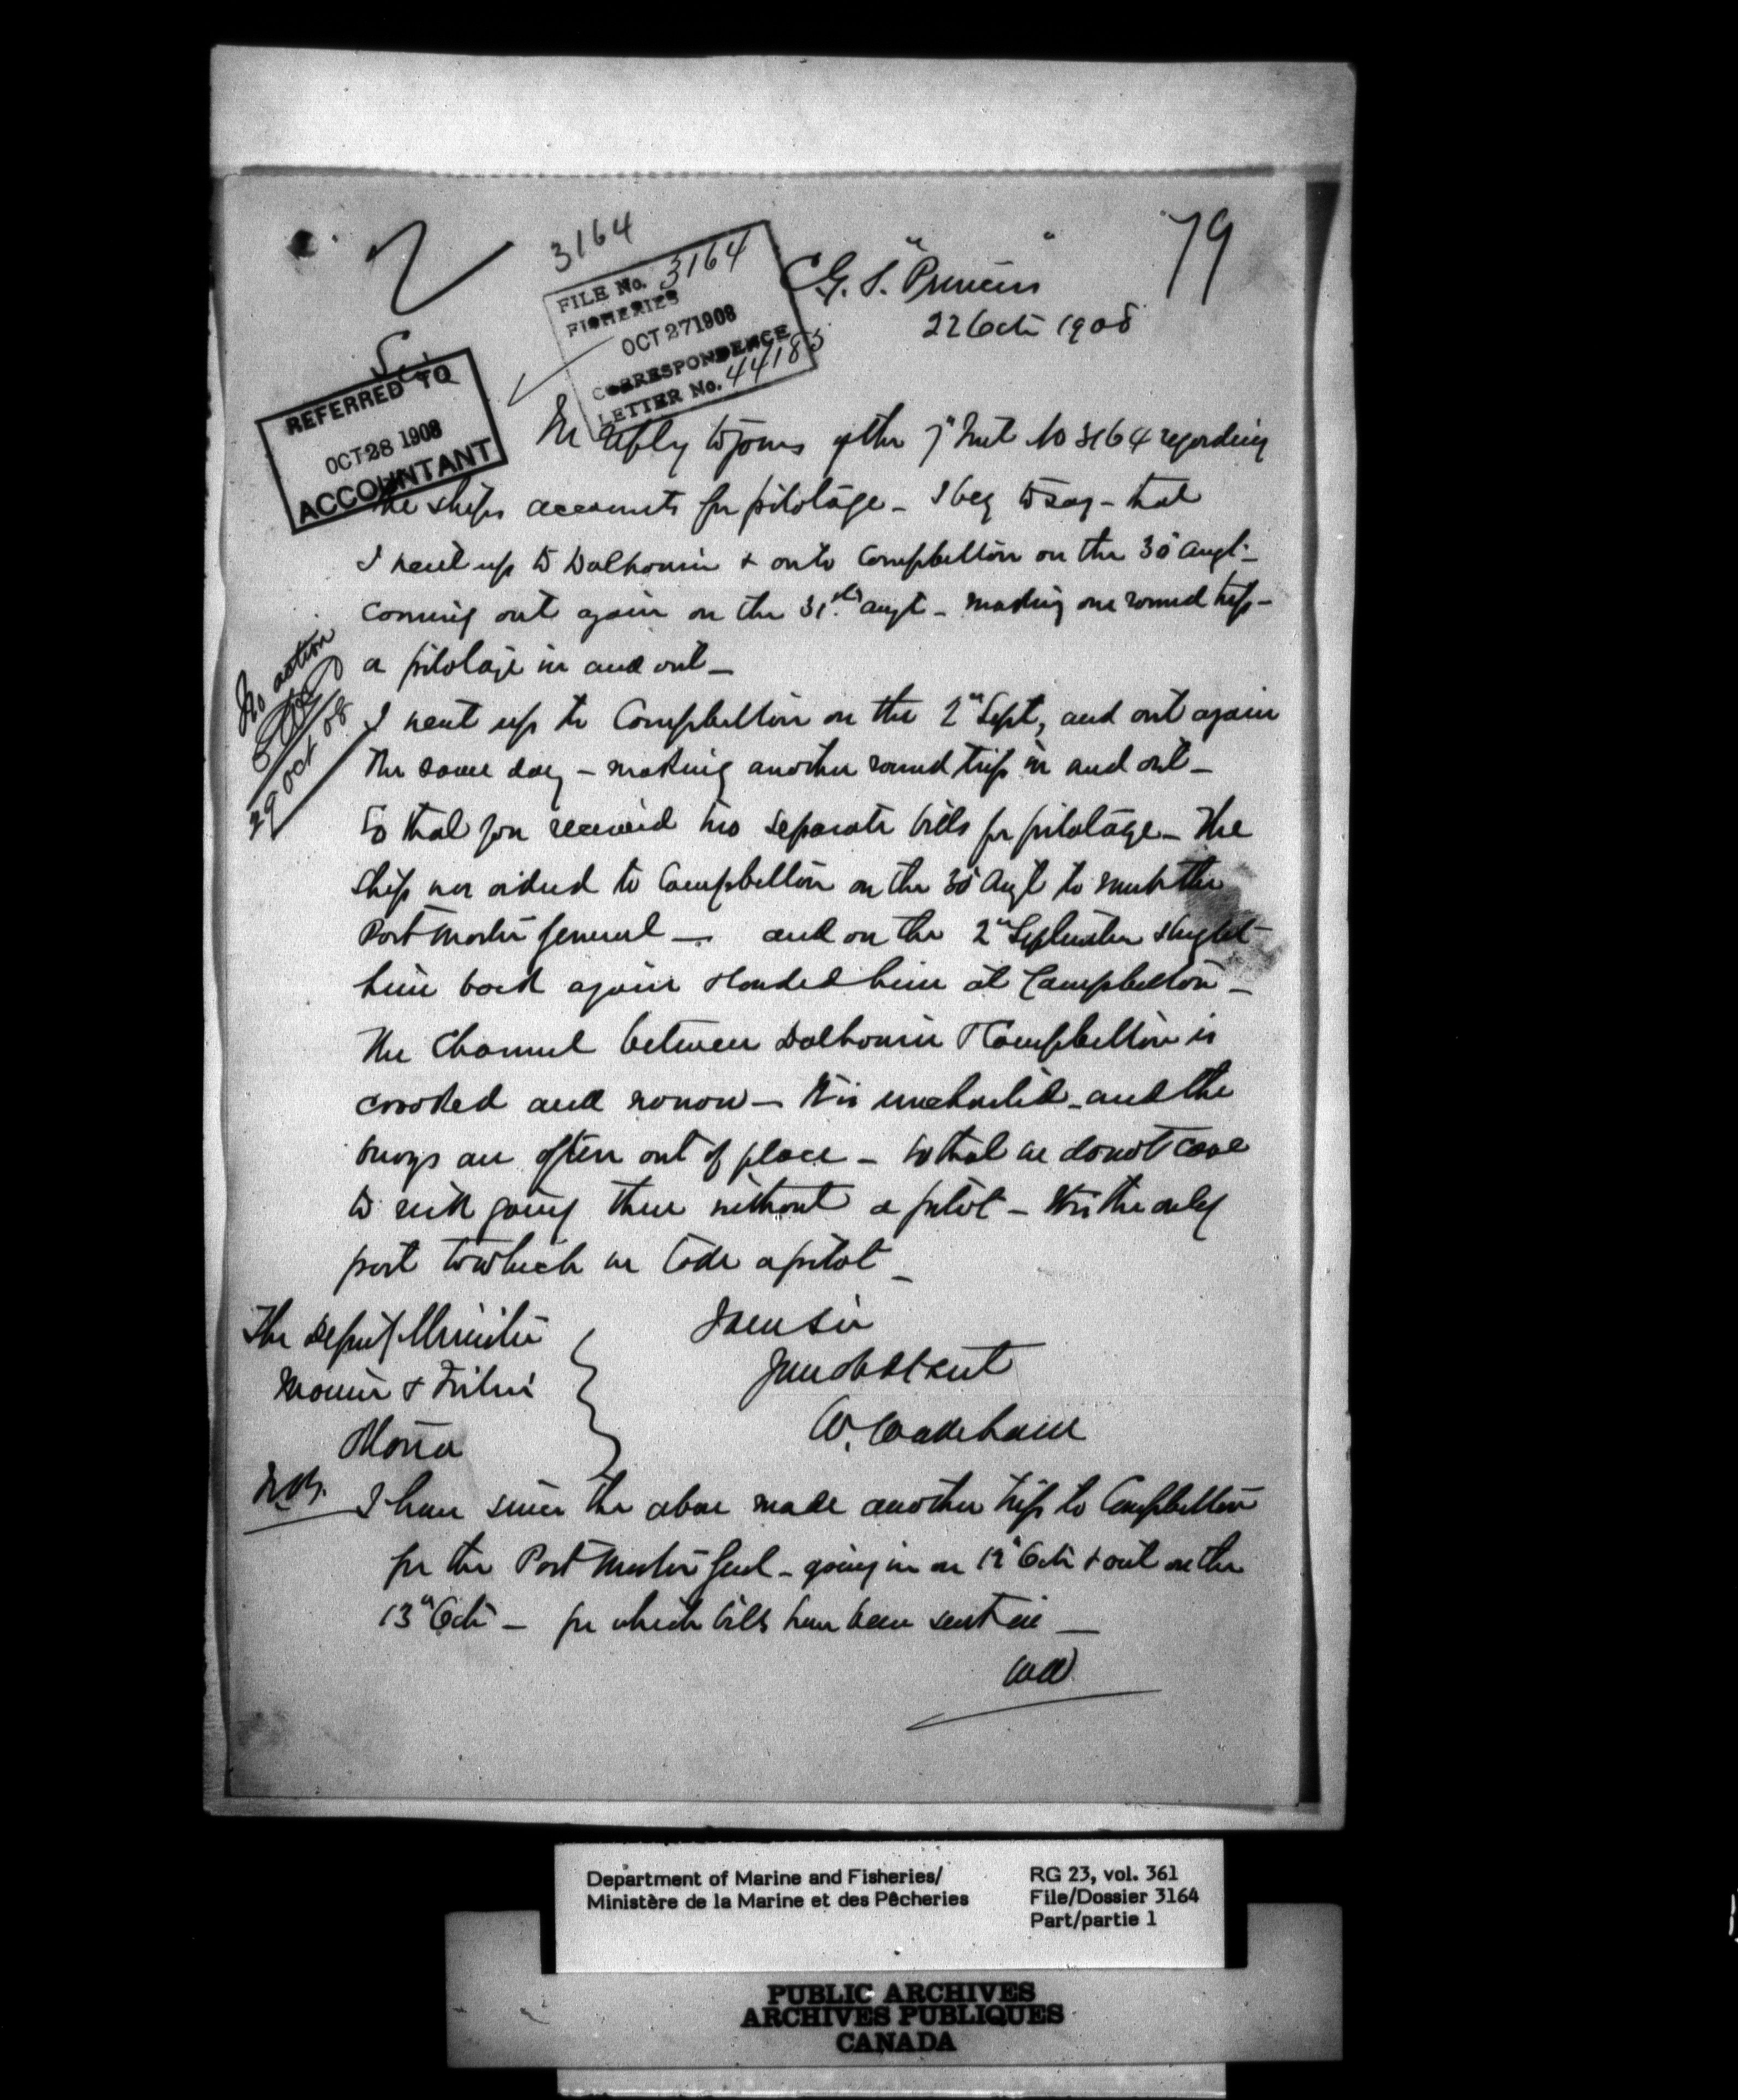 79
3164
FILE No. 3164
FISHERIES
OCT 27 1908
CORRESPONDENCE
LETTER No. 44183
C.G.S. "Princess"
22 Octr 1908
Sir
REFERRED TO
OCT 28 1908
ACCOUNTANT
In reply to yours of the 7" Inst No 3164 regarding
the ships accounts for pilotage - I beg to say - that
I went up to Dalhousie & onto Campbellton on the 30 Augt -
coming out again on the 31st Augt - making one round trip -
a pilotage in and out -
No action
29 Oct 08
I went up to Campbellton on the 2" Sept, and out again
the same day - making another round trip in and out -
So that you received two separate bills for pilotage - The
ship was ordered to Campbellton on the 30 Augt to meet the
Post Master General - and on the 2" September brought
him back again & landed him at Campbellton -
The Channel between Dalhousie & Campbellton is
crooked and narrow - It is uncharted - and the
buoys are often out of place - so that we do not care
to risk going there without a pilot - It is the only
port to which we take a pilot -
The Deputy Minister
Marine & Fisheries
Ottawa
I am Sir
Your Obt Servt
W. Wakeham
N.B. I have since the above made another trip to Campbellton
for the Post Master Genl - going in on 12" Octr & out on the
13" Octr - for which bills have been sent in -
WW
Department of Marine and Fisheries/
Ministère de la Marine et des Pêcheries
RG 23, vol. 361
File/Dossier 3164
Part/partie 1
PUBLIC ARCHIVES
ARCHIVES PUBLIQUES
CANADA